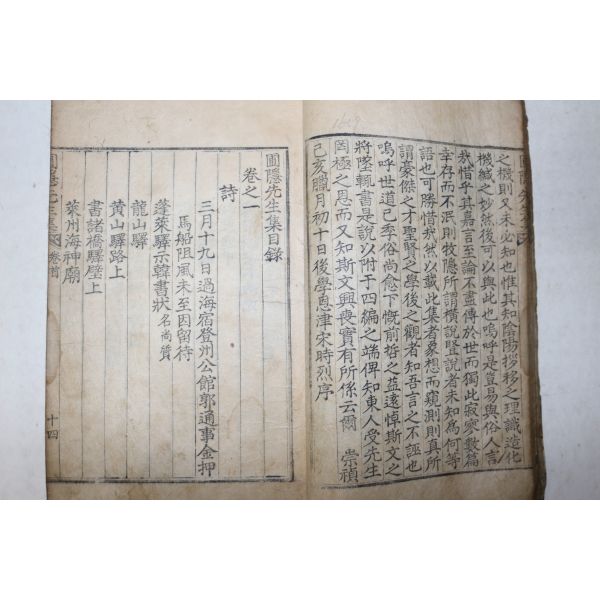 之機則又未必知也惟其知陰陽推移之理識造化
機緘之妙然後可以與此也嗚呼是豈易與俗人言
哉惜乎其嘉言至論不盡傳於世而獨此寂寥數篇
幸存而不泯則牧隱所謂橫說竪說者未知為何等
語也可勝惜哉然以載此集者彖想而窺測則真所
謂豪傑之才聖賢之學後之觀者知吾言之不誣也
嗚呼世道已季俗尚愈下慨前哲之益遠悼斯文之
將墜輒書是說以附于四編之端俾知東人受先生
罔極之恩而又知斯文興喪實有所係云爾 崇禎
己亥臘月初十日後學恩津宋時烈序
圃隱先生集目錄
卷之一
詩
三月十九日過海宿登州公館郭通事金押
馬船阻風未至因留待
蓬萊驛示韓書狀名尚質
龍山驛
黃山驛路上
書諸橋驛壁上
萊州海神廟
卷首
十四